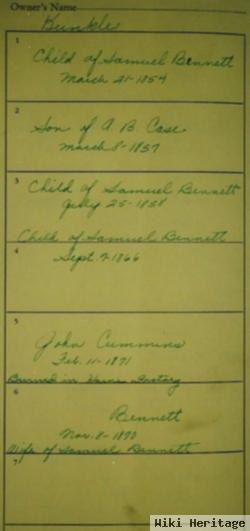 Owner's Name
Kunkle
1
Child of Samuel Bennett
March 21-1854
2
Son of A B Case
March 8-1857
3
Child of Samuel Bennett
July 25-1858
Child of Samuel Bennett
4
Sept 2-1866
5
John Cummins
Feb. 11-1871
Burned in Factory
6
Bennett
Nov. 8-1870
Wife of Samuel Bennett
7
Wiki Heritage